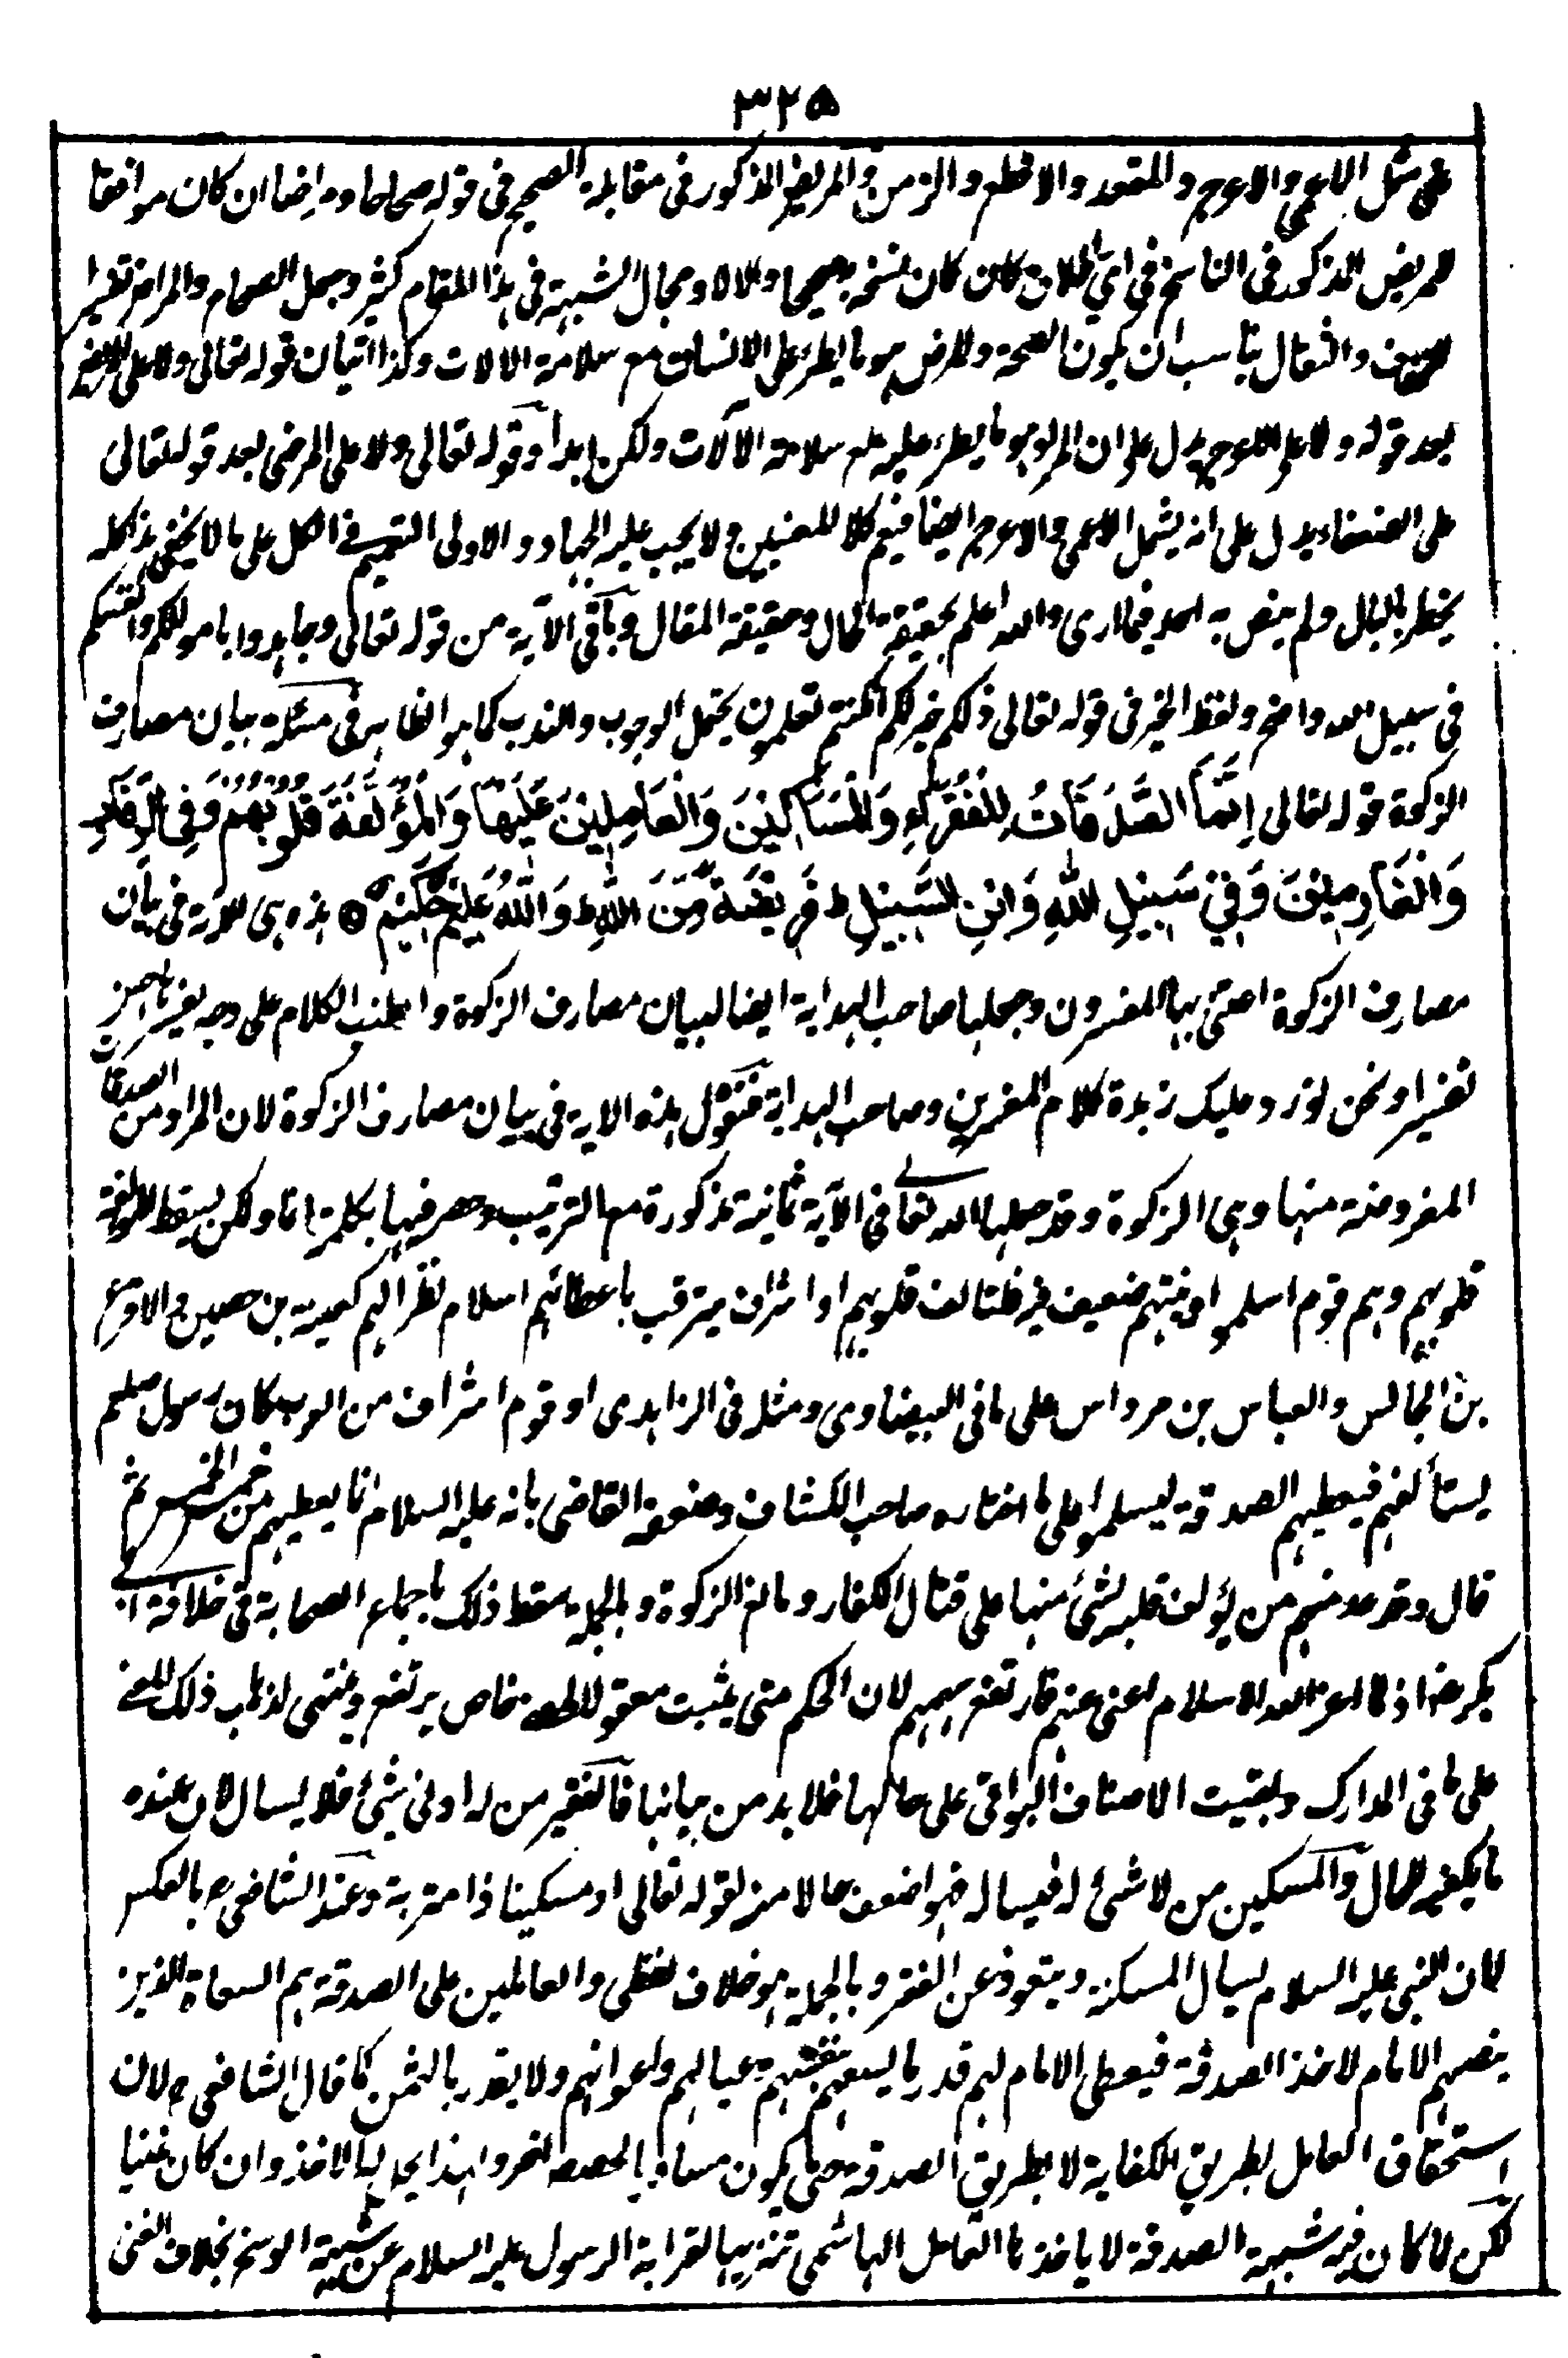 ٣٢٥
على مثل الاعمى والاعرج والمقعد والاقطع والزمن والمريض المذكور فى مقابلة الصحيح فى قوله صحاحا ومراضا ان كان موافقا
للمريض المذكور فى الناسخ فى اى اطلاق كان كان نسخه صحيحا والا لا ومجال الشبهة فى هذا المقام كثير وجعل الصحاح والمراض تفسيرا
للخفاف والثقال يناسب ان يكون الصحة والمرض هو ما يطرء على الانسان مع سلامة الالات وكذا اتيان قوله تعالى ولا على المريض
بعد قوله ولا على الاعرج يدل على ان المراد هو ما يطرء عليه مع سلامة الآلات ولكن ابدا وقوله تعالى ولا على المرضى بعد قوله تعالى
على الضعفاء يدل على انه يشمل الاعمى والاعرج ايضا فيعم كلا المعنيين ولا يجب عليه الجهاد والاولى التعميم فى الكل على ما لا يخفى هذا كله
يخطر بالبال ولم ينص به احد فيما ارى والله اعلم بحقيقة الحال وحقيقة المقال وباقى الآية من قوله تعالى وجاهدوا باموالكم وانفسكم
فى سبيل الله واضح ولفظ الخير فى قوله تعالى ذلكم خير لكم ان كنتم تعلمون يحتمل الوجوب والندب كما هو الظاهر فى مسئلة بيان مصارف
الزكوة قوله تعالى اِنَّمَا الصَّدَقَاتُ لِلْفُقَرَاءِ وَالْمَسَاكِيْنَ وَالْعَامِلِيْنَ عَلَيْهَا وَالْمُؤَلَّفَةِ قُلُوْبُهُمْ وَفِى الرِّقَابِ
وَالْغَارِمِيْنَ وَفِيْ سَبِيْلِ اللّٰهِ وَابْنِ السَّبِيْلِ ط فَرِيْضَةً مِّنَ اللّٰهِ ط وَاللّٰهُ عَلِيْمٌ حَكِيْمٌ ۝ هذه هى الآية فى بيان
مصارف الزكوة اعتنى بها المفسرون وجعلها صاحب الهداية ايضا لبيان مصارف الزكوة واطنب الكلام على وجه يفسر باحسن
تفسير ونحن نورد عليك زبدة كلام المفسرين وصاحب الهداية فنقول هذه الاية فى بيان مصارف الزكوة لان المراد من الصدقات
المفروضة منها وهى الزكوة وقد جعلها الله تعا فى الآية ثمانية مذكورة مع الترتيب وحصر فيها بكلمة انما ولكن يسقط المؤلفة
قلوبهم وهم قوم اسلموا ونيتهم ضعيف فيه فتتالف قلوبهم او اشراف يترقب باعطائهم اسلام نظرائهم كعيينة بن حصين والاقرع
بن الحابس والعباس بن مرداس على ما فى البيضاوى ومثله فى الزاهدى او قوم اشراف من العرب كان رسول صلعم
يستألفهم فيعطيهم الصدقة ليسلموا على ما اختاره صاحب الكشاف وضعفه القاضى بانه عليه السلام انما يعطيهم من خمس الخمس ثم
قال وقد عد منهم من يؤلف قلبه بشئ منها على قتال الكفار ومانع الزكوة وبالجملة سقط ذلك باجماع الصحابة فى خلافة ابى
بكر رض اذ لما اعز الله الاسلام اغنى عنهم فارتفع سهمهم لان الحكم متى يثبت معقولا لمعنى خاص يرتفع وينتهى لذهاب ذلك المعنى
على ما فى المدارك وبقيت الاصناف البواقى على حالها فلا بد من بيانها فالفقير من له ادنى شئ فلا يسال لان عنده
ما يكفيه للحال والمسكين من لا شئ له فيسال فهو اضعف حالا منه لقوله تعالى او مسكينا ذا متربة وعند الشافعى رح بالعكس
لان النبى عليه السلام يسال المسكنة ويتعوذ عن الفقر وبالجملة هو خلاف لفظى والعاملين على الصدقة هم السعاة الذين
ينصبهم الامام لاخذ الصدقة فيعطى الامام لهم قدر ما يسعهم نفقتهم وعيالهم واعوانهم ولا يقدر بالثمن كما قال الشافعى رح لان
استحقاق العامل بطريق الكفاية لا بطريق الصدقة حتى يكون مساويا لحصص اخر ولهذا يحل لها الاخذ وان كان غنيا
لكن لما كان فيه شبهة الصدقة لا ياخذها العامل الهاشمى تنزيها لقرابة الرسول عليه السلام عن شبهة الوسخ بخلاف الغنى